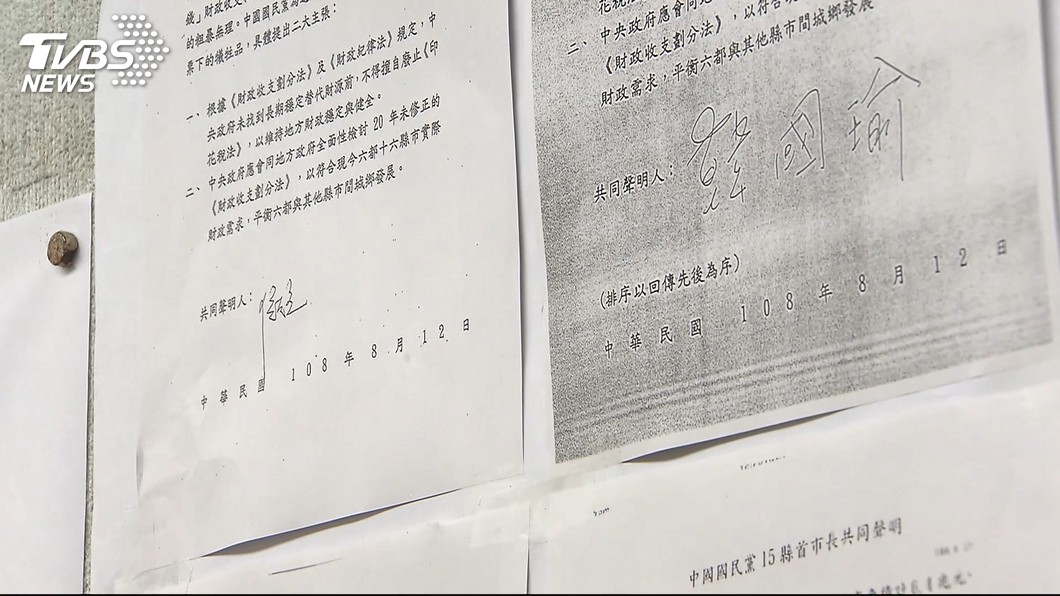 TVBS
NEWS
錢」財政收支
的粗暴無理。中國國民黨
票下的犧牲品,具體提出二大主張:
一、根據《財政收支劃分法》及《財政紀律法》規定,中
央政府未找到長期穩定替代財源前,不得擅自廢止《印
花稅法》,以維持地方財政穩定與健全。
二、中央政府應會同地方政府全面性檢討 20 年未修正的
《財政收支劃分法》,以符合現今六都十六縣市實際
財政需求,平衡六都與其他縣市間城鄉發展。
共同聲明人:
中 華 民 國 108 年 8 月 12 日
花稅法
二、中央政府應會同地
《財政收支劃分法》,以符合現
財政需求,平衡六都與其他縣市間城鄉發展
共同聲明人:韓國瑜
(排序以回傳先後為序)
中 華 民 國 108 年 8 月 12 日
中國國民黨 15 縣首市長共同聲明